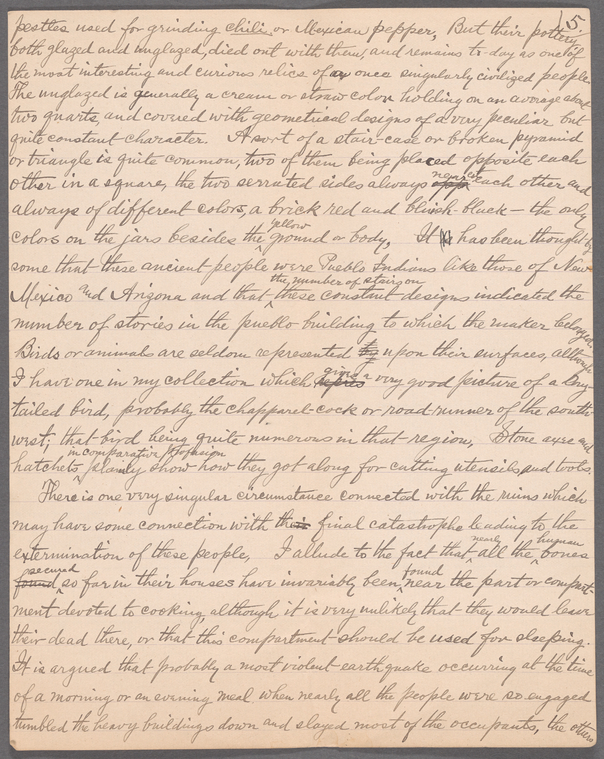 15
pestles used for grinding chili, or Mexican pepper. But their pottery
both glazed and unglazed, died out with them, and remains to-day as one of
the most interesting and curious relics of a once singularly civilized people.
The unglazed is generally a cream or straw color holding on an average about
two quarts, and covered with geometrical designs of a very peculiar but
quite constant character. A sort of a stair-case or broken pyramid
or triangle is quite common, two of them being placed opposite each
nearest
other in a square, the two serrated sides always opp. each other and
always of different colors, a brick red and bluish-black — the only
yellow
colors on the jars besides the ground or body. It has been thought by
some that these ancient people were Pueblo Indians like those of New
the number of stairs on
Mexico and Arizona and that these constant designs indicated the
number of stories in the pueblo building to which the maker belonged.
Birds or animals are seldom represented upon their surfaces, although
gives a
I have one in my collection which repres very good picture of a long-
tailed bird, probably the chapparel-cock or road-runner of the south-
west; that bird being quite numerous in that region. Stone axes and
in comparative profusion
hatchets plainly show how they got along for cutting utensils and tools.
There is one very singular circumstance connected with the ruins which
may have some connection with their final catastrophe leading to the
nearly human
extermination of these people. I allude to the fact that all the bones
secured found
found so far in their houses have invariably been near the part or compart-
ment devoted to cooking, although it is very unlikely that they would leave
their dead there, or that this compartment should be used for sleeping.
It is argued that probably a most violent earthquake occurring at the time
of a morning or an evening meal when nearly all the people were so engaged
tumbled the heavy buildings down and slayed most of the occupants, the others